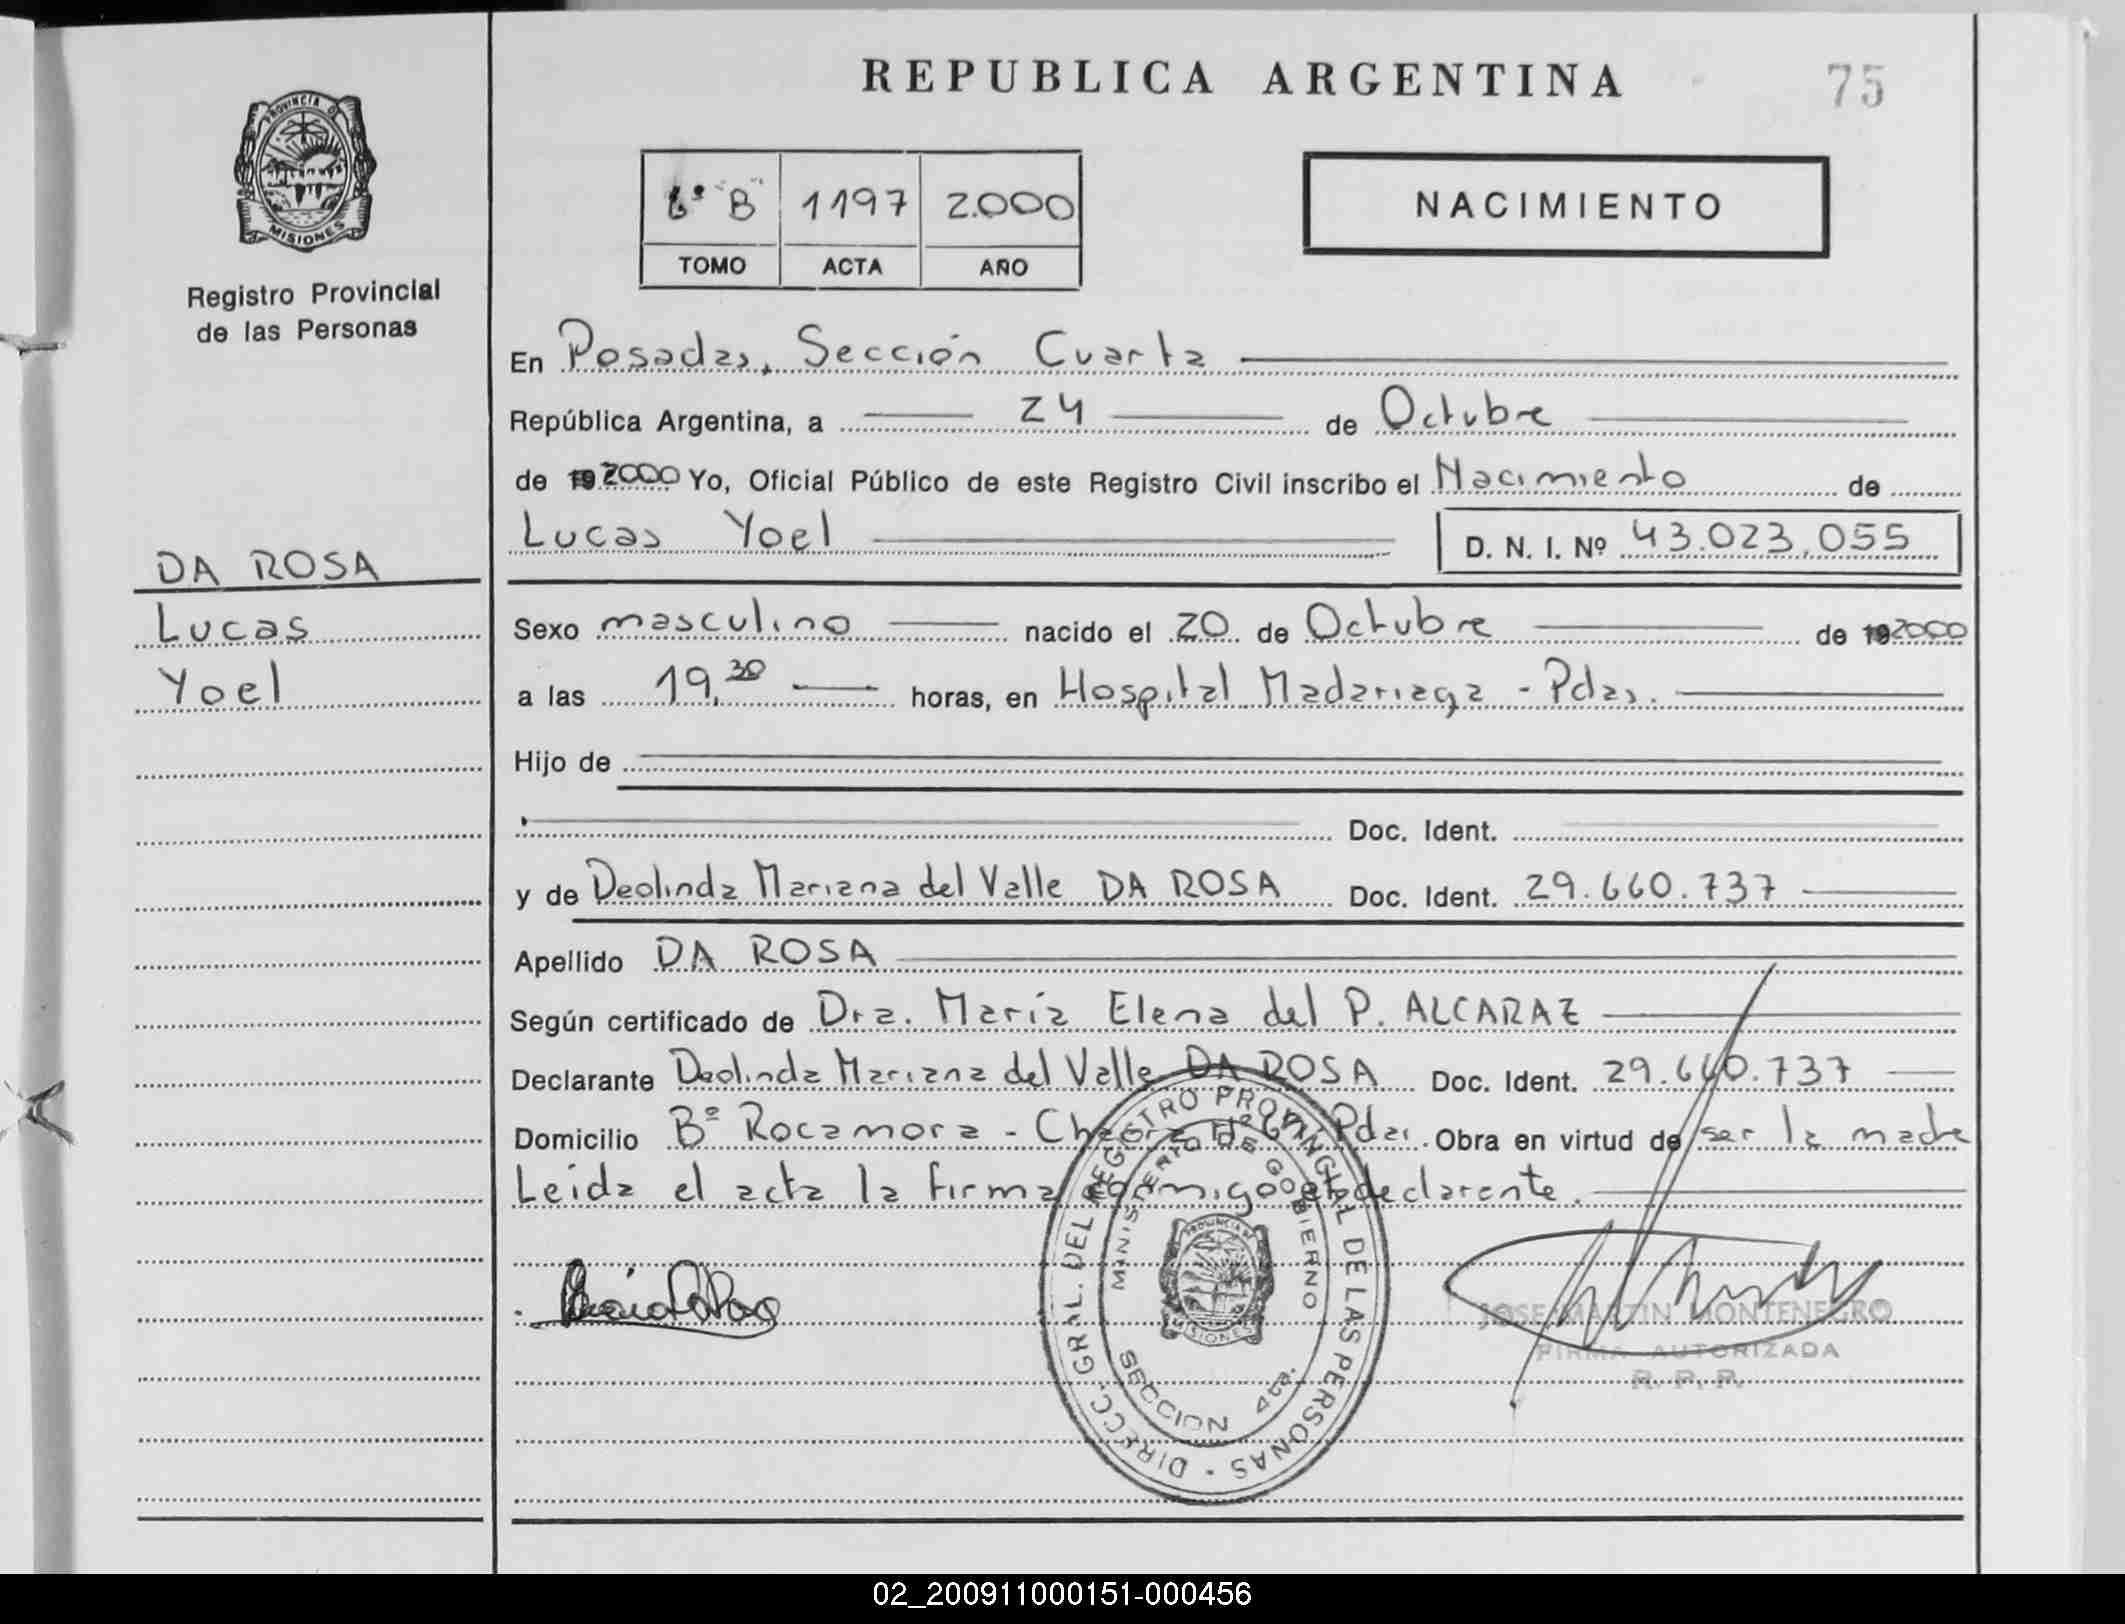 REPUBLICA ARGENTINA
75
PROVINCIA DE
MISIONES
Registro Provincial
de las Personas
6º "B" 1197 2.000
TOMO ACTA AÑO
NACIMIENTO
En Posadas, Sección Cuarta
República Argentina, a 24 de Octubre
de 19 2000 Yo, Oficial Público de este Registro Civil inscribo el Nacimiento de
Lucas Yoel D. N. I. Nº 43.023.055
DA ROSA
Lucas
Yoel
Sexo masculino nacido el 20 de Octubre de 19 2000
a las 19,30 horas, en Hospital Madariaga - Pdas.
Hijo de
Doc. Ident.
y de Deolinda Mariana del Valle DA ROSA Doc. Ident. 29.660.737
Apellido DA ROSA
Según certificado de Dra. María Elena del P. ALCARAZ
Declarante Deolinda Mariana del Valle DA ROSA Doc. Ident. 29.660.737
Domicilio Bº Rocamora - Pdas. Obra en virtud de ser la madre
Leída el acta la firma conmigo declarante.
DIRECC. GRAL. DEL REGISTRO PROVINCIAL DE LAS PERSONAS
MINISTERIO DE GOBIERNO
MISIONES
SECCION 4ta.
JOSE MARTIN MONTENEGRO
FIRMA AUTORIZADA
R. P. P.
02_200911000151-000456